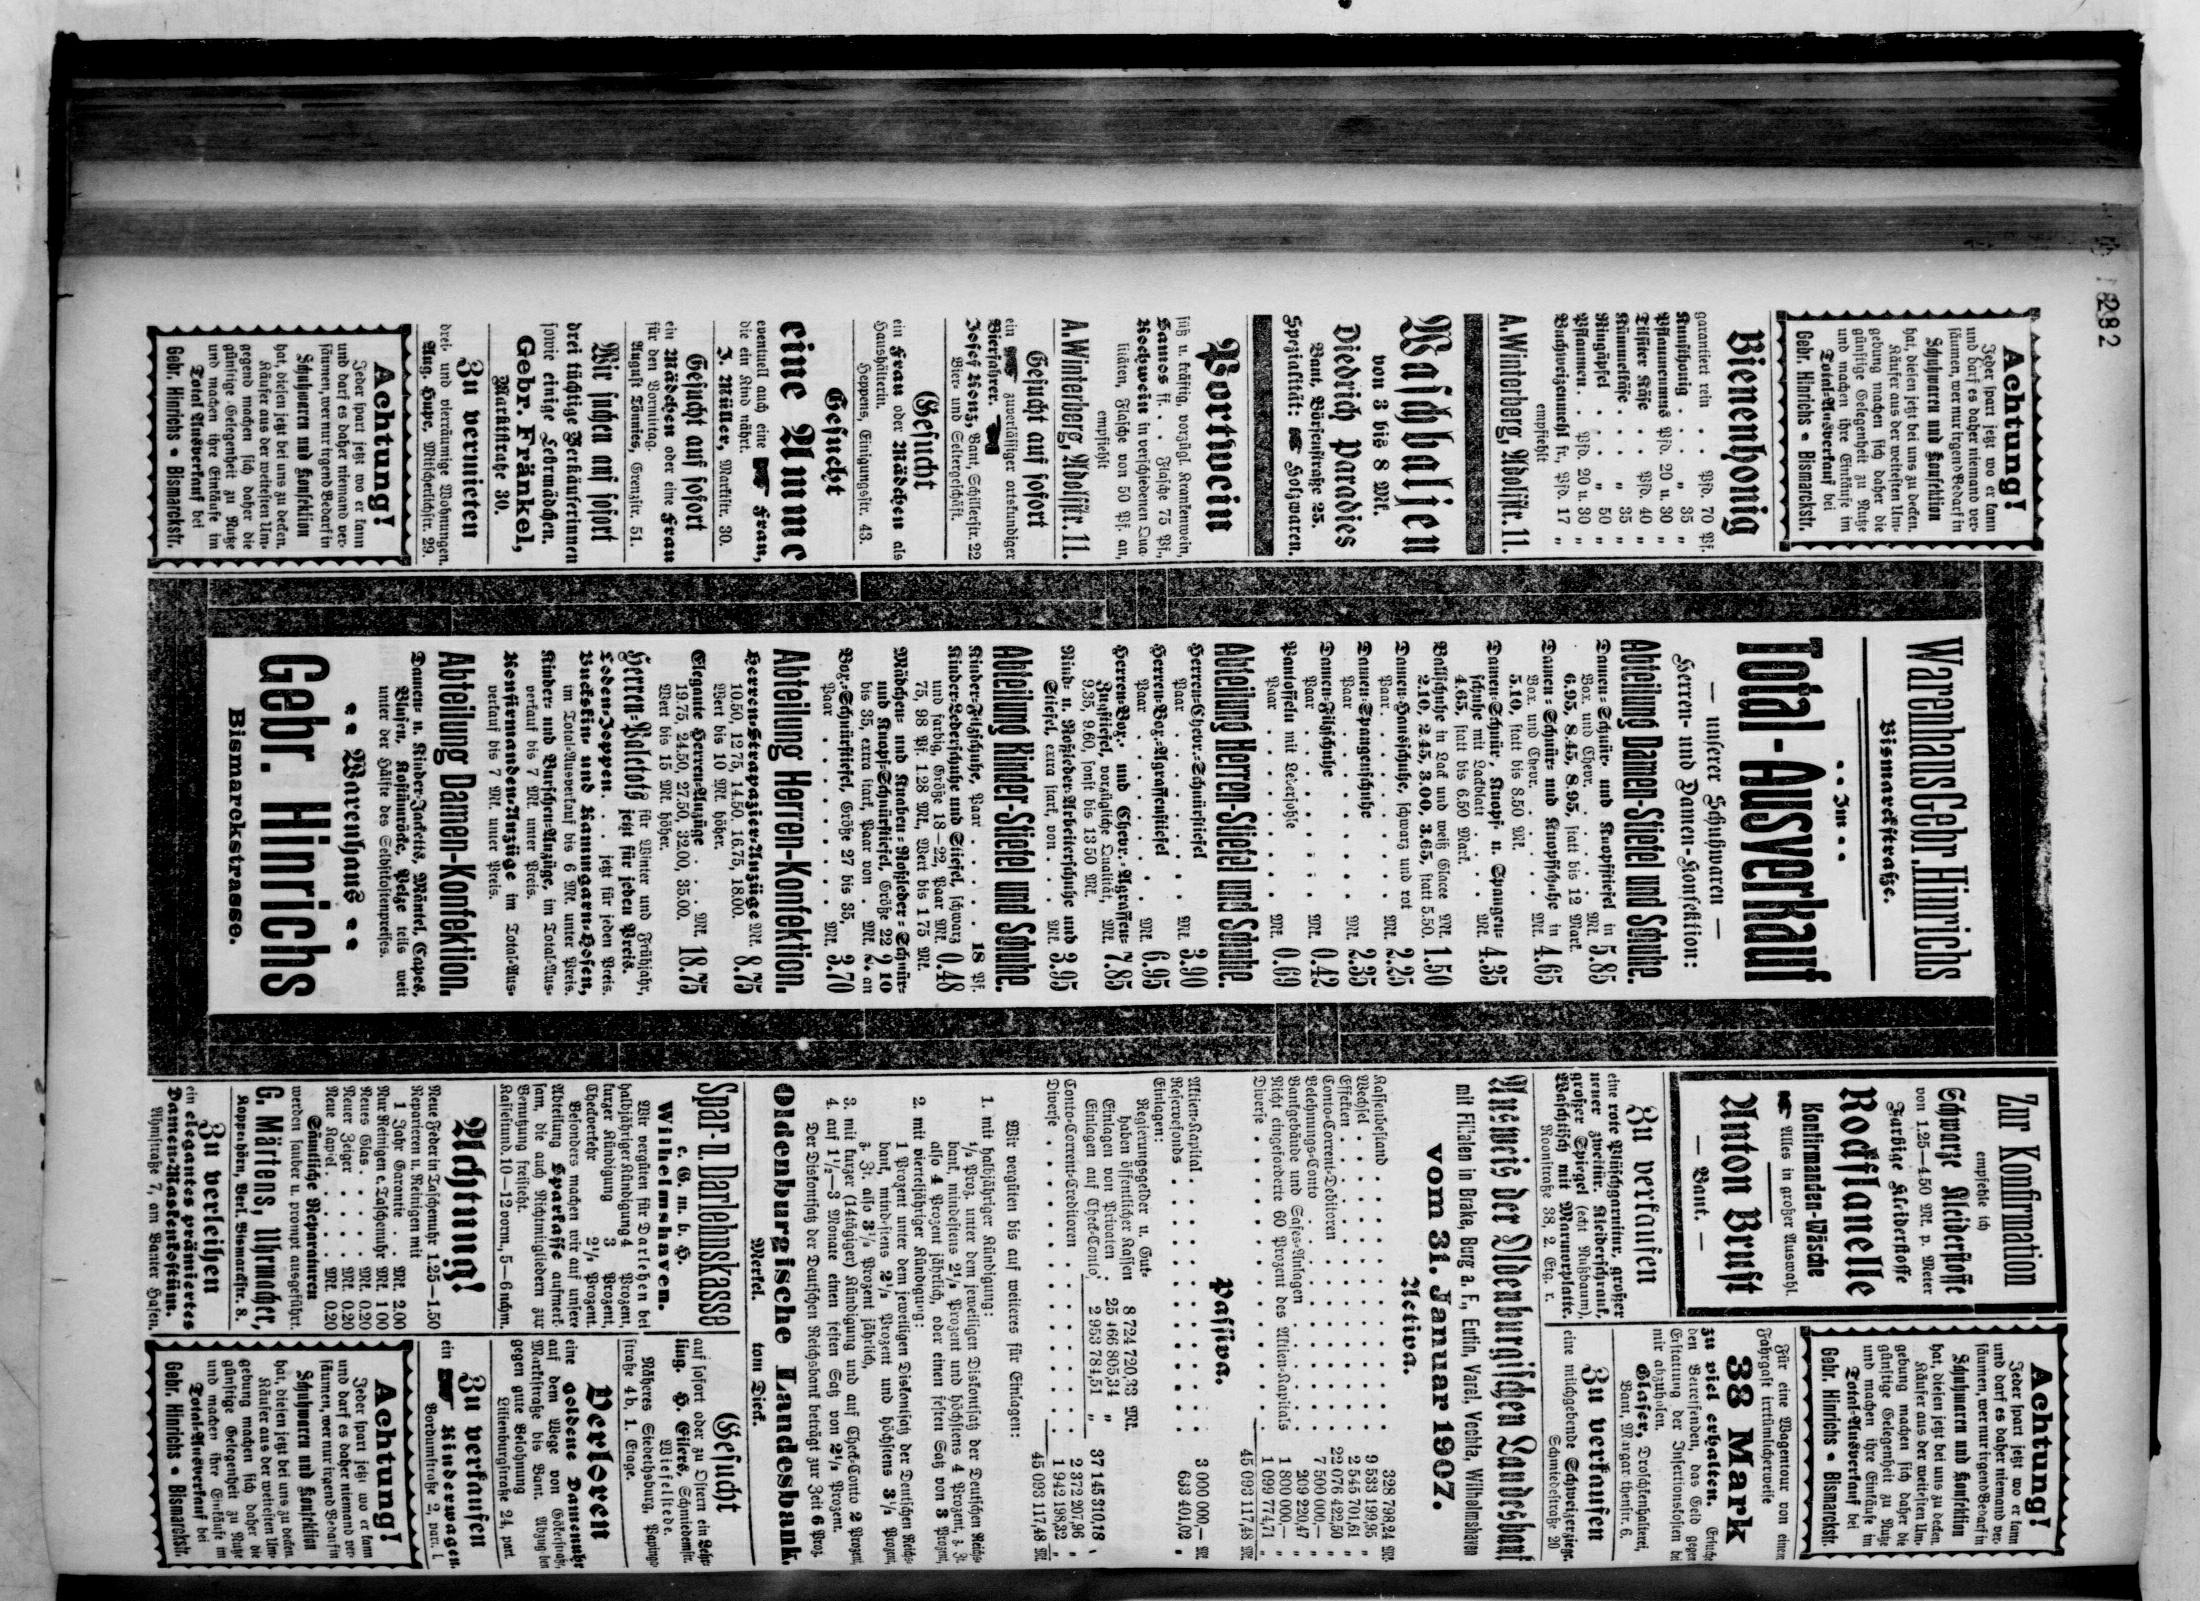 282
Achtung!
Jeder spart jetzt wo er kann
und darf es daher niemand ver-
säumen, wer nur irgend Bedarf in
Schuhwaren und Konfektion
hat, diesen jetzt bei uns zu decken.
Käufer aus der weitesten Um-
gebung machen sich daher die
günstige Gelegenheit zu Nutze
und machen ihre Einkäufe im
Total-Ausverkauf bei
Gebr. Hinrichs • Bismarckstr.
Bienenhonig
garantiert rein . Pfd. 70 Pf.
Kunsthonig . . „ 35 „
Pflaumenmus Pfd. 20 u. 30 „
Tilsiter Käse . . Pfd. 40 „
Kümmelkäse . . „ 35 „
Ringäpfel . . . „ 50 „
Pflaumen. . Pfd. 20 u. 30 „
Buchweizenmehl fr. Pfd. 17 „
empfiehlt
A. Winterberg, Adolfstr. 11.
Waschbaljen
von 3 bis 8 Mk.
Diedrich Paradies
Bant, Börsenstraße 25.
Spezialität: Holzwaren.
Portwein
süß u. kräftig, vorzügl. Krankenwein,
Samos ff. . . Flasche 75 Pf.,
Kochwein in verschiedenen Qua-
litäten, Flasche von 50 Pf. an,
empfiehlt
A. Winterberg, Adolfstr. 11.
Gesucht auf sofort
ein zuverlässiger ortskundiger
Bierfahrer.
Josef Konz, Bant, Schillerstr. 22
Bier- und Seltergeschäft.
Gesucht
ein Frau oder Mädchen als
Haushälterin.
Heppens, Einigungsstr. 43.
Gesucht
eine Amme
eventuell auch eine Frau,
die ein Kind nährt.
J. Müller, Marktstr. 30.
Gesucht auf sofort
ein Mädchen oder eine Frau
für den Vormittag.
August Tönnies, Grenzstr. 51.
Wir suchen auf sofort
drei tüchtige Verkäuferinnen
sowie einige Lehrmädchen.
Gebr. Fränkel,
Marktstraße 30.
Zu vermieten
drei- und vierräumige Wohnungen.
Aug. Hupe, Mitscherlichstr. 29.
Achtung!
Jeder spart jetzt wo er kann
und darf es daher niemand ver-
säumen, wer nur irgend Bedarf in
Schuhwaren und Konfektion
hat, diesen jetzt bei uns zu decken.
Käufer aus der weitesten Um-
gegend machen sich daher die
günstige Gelegenheit zu Nutze
und machen ihre Einkäufe im
Total Ausverkauf bei
Gebr. Hinrichs • Bismarckstr.
Warenhaus Gebr. Hinrichs
Bismarckstraße.
. . Im . .
Total-Ausverkauf
— unserer Schuhwaren —
Herren- und Damen-Konfektion:
Abteilung Damen-Stiefel und Schuhe.
Damen-Schnür- und Knopfstiefel in
Box und Chevr. . . . . Mk. 5.85
6.95, 8.45, 8.95, statt bis 12 Mark.
Damen-Schnür- und Knopfschuhe in
Box und Chevr. . . . . Mk. 4.65
5.10, statt bis 8.50 Mk.
Damen-Schnür, Knopf- u. Spangen-
schuhe mit Lackblatt . . . Mk. 4.35
4.65, statt bis 6.50 Mark.
Ballschuhe in Lack und weiß Glacee Mk. 1.50
2.10, 2.45, 3.00, 3.65, statt 5.50.
Damen-Hausschuhe, schwarz und rot
Paar. . . . . . . . Mk. 2.25
Damen-Spangenschuhe
Paar . . . . . . . Mk. 2.35
Damen-Filzschuhe
Paar . . . . . . . Mk. 0.42
Pantoffeln mit Ledersohle
Paar . . . . . . . Mk. 0.69
Abteilung Herren-Stiefel und Schuhe.
Herren-Chevr.-Schnürstiefel
Paar . . . . . . . Mk. 3.90
Herren-Box-Agraffenstiefel
Paar . . . . . . . Mk. 6.95
Herren-Box- und Chevr.-Agraffen-
Zugstiefel, vorzügliche Qualität, Mk. 7.85
9.35, 9.60, sonst bis 13.50 Mk.
Rind- u. Roßleder-Arbeiterschuhe und
Stiefel, extra stark, von . . Mk. 3.95
Abteilung Kinder-Stiefel und Schuhe.
Kinder-Filzschuhe, Paar . . . . 18 Pf.
Kinder-Lederschuhe und Stiefel, schwarz
und farbig, Größe 18—22, Paar Mk. 0.48
75, 98 Pf. 1.28 Mk., Wert bis 1.75 Mk.
Mädchen- und Knaben-Roßleder-Schnür-
und Knopf-Schnürstiefel, Größe 22
bis 35, extra stark, Paar von . Mk. 2.10 an
Box-Schnürstiefel, Größe 27 bis 35,
Paar . . . . . . . Mk. 3.70
Abteilung Herren-Konfektion.
Herren-Strapazier-Anzüge Mk. 8.75
10.50, 12.75, 14.50, 16.75, 18.00.
Wert bis 10 Mk. höher.
Elegante Herren-Anzüge . . Mk. 18.75
19.75, 24.50, 27.50, 32.00, 35.00.
Wert bis 15 Mk. höher.
Herren-Paletots für Winter und Frühjahr,
jetzt für jeden Preis.
Loden-Joppen . . . jetzt für jeden Preis.
Buckskin- und Kammgarn-Hosen,
im Total-Ausverkauf bis 6 Mk. unter Preis.
Kinder- und Burschen-Anzüge, im Total-Aus-
verkauf bis 7 Mk. unter Preis.
Konfirmanden-Anzüge im Total-Aus-
verkauf bis 7 Mk. unter Preis.
Abteilung Damen-Konfektion.
Damen- u. Kinder-Jacketts, Mäntel, Capes,
Blusen, Kostümröcke, Pelze teils weit
unter der Hälfte des Selbstkostenpreises.
Warenhaus
Gebr. Hinrichs
Bismarckstrasse.
Zur Konfirmation
empfehle ich
Schwarze Kleiderstoffe
von 1.25—4.50 Mk. p. Meter
Farbige Kleiderstoffe
Rockflanelle
Konfirmanden-Wäsche
Alles in großer Auswahl.
Anton Brust
— Bant. —
Zu verkaufen
eine rote Plüschgarnitur, großer
neuer zweitür. Kleiderschrank,
großer Spiegel (echt Nußbaum),
Waschtisch mit Marmorplatte.
Roonstraße 38, 2. Etg. r.
Achtung!
Jeder spart jetzt wo er kann
und darf es daher niemand ver-
säumen, wer nur irgend Bedarf in
Schuhwaren und Konfektion
hat, diesen jetzt bei uns zu decken.
Käufer aus der weitesten Um-
gebung machen sich daher die
günstige Gelegenheit zu Nutze
und machen ihre Einkäufe im
Total-Ausverkauf bei
Gebr. Hinrichs • Bismarckstr.
Für eine Wagentour von einem
Fahrgast irrtümlicherweise
38 Mark
zu viel erhalten. Ersuche
den Betreffenden, das Geld gegen
Erstattung der Insertionskosten bei
mir abzuholen.
Glaser, Droschkenhalterei,
Bant, Margarethenstr. 6.
Zu verkaufen
eine milchgebende Schweizerziege.
Schmiedestraße 20
Ausweis der Oldenburgischen Landesbank
mit Filialen in Brake, Burg a. F., Eutin, Varel, Vechta, Wilhelmshaven
vom 31. Januar 1907.
Activa.
Kassenbestand . . . . . . . 328 798,24 Mk.
Wechsel . . . . . . . 9 533 199,95 „
Effekten . . . . . . . 2 545 701,61 „
Conto-Corrent-Debitoren . . . . . . . 22 076 422,50 „
Belehnungs-Conto . . . . . . . 7 500 000,— „
Bankgebäude und Safes-Anlagen . . . . . . . 209 220,47 „
Nicht eingeforderte 60 Prozent des Aktien-Kapitals 1 800 000,— „
Diverse . . . . . . . 1 099 774,71 „
45 093 117,48 Mk.
Passiva.
Aktien-Kapital . . . . . . . 3 000 000,— Mk.
Reservefonds . . . . . . . 633 401,02 „
Einlagen:
Regierungsgelder u. Gut-
haben öffentlicher Kassen 8 724 720,33 Mk.
Einlagen von Privaten . 25 466 805,34 „
Einlagen auf Check-Conto 2 953 784,51 „
37 145 310,18 „
Conto-Corrent-Creditoren . . . . . . . 2 372 207,96 „
Diverse . . . . . . . 1 942 198,32 „
45 093 117,48 Mk.
Wir vergüten bis auf weiteres für Einlagen:
1. mit halbjähriger Kündigung:
½ Proz. unter dem jeweiligen Diskontsatz der Deutschen Reichs-
bank, mindestens 2½ Prozent und höchstens 4 Prozent, z. Zt.
also 4 Prozent jährlich, oder einen festen Satz von 3 Prozent,
2. mit vierteljähriger Kündigung:
1 Prozent unter dem jeweiligen Diskontsatz der Deutschen Reichs-
bank, mindestens 2½ Prozent und höchstens 3½ Prozent,
z. Zt. also 3½ Prozent jährlich,
3. mit kurzer (14tägiger) Kündigung und auf Check-Conto 2 Prozent,
4. auf 1½—3 Monate einen festen Satz von 2½ Prozent.
Der Diskontsatz der Deutschen Reichsbank beträgt zur Zeit 6 Proz.
Oldenburgische Landesbank.
Merkel. tom Dieck.
Spar- u Darlehnskasse
e. G. m. b. H.
Wilhelmshaven.
Wir vergüten für Darlehen bei
halbjähriger Kündigung 4 Prozent,
kurzer Kündigung 3 Prozent,
Checkverkehr 2½ Prozent.
Besonders machen wir auf unsere
Abteilung Sparkasse aufmerk-
sam, die auch Nichtmitgliedern zur
Benutzung freisteht.
Kassenstund. 10—12 vorm., 5—6 nchm.
Achtung!
Neue Feder in Taschenuhr 1.25—1.50
Reparieren u. Reinigen mit
1 Jahr Garantie . Mk. 2.00
Nur Reinigen e. Taschenuhr Mk. 1.00
Neues Glas. . . . Mk. 0.20
Neuer Zeiger . . . Mk. 0.20
Neue Kapsel . . . Mk. 0.20
Sämtliche Reparaturen
werden sauber u. prompt ausgeführt.
G. Märtens, Uhrmacher,
Kopperhörn, Verl. Bismarckstr. 8.
Zu verleihen
ein elegantes prämiiertes
Damen-Maskenkostüm.
Ahmstraße 7, am Banter Hafen.
Gesucht
auf sofort oder zu Ostern ein Lehr-
ling. H. Eilers, Schmiedemstr.
Wiefelstede.
Näheres Siebethsburg,
straße 4b, 1. Etage.
Verloren
eine goldene Damenuhr
auf dem Wege von Gökerstraße,
Marktstraße bis Bant. Abzug ben
gegen gute Belohnung
Lilienburgstraße 24, part.
Zu verkaufen
ein Kinderwagen.
Bordumstraße 2, part. l.
Achtung!
Jeder spart jetzt wo er kann
und darf es daher niemand ver-
säumen, wer nur irgend Bedarf in
Schuhwaren und Konfektion
hat, diesen jetzt bei uns zu decken.
Käufer aus der weitesten Um-
gebung machen sich daher die
günstige Gelegenheit zu Nutze
und machen ihre Einkäufe im
Total-Ausverkauf bei
Gebr. Hinrichs • Bismarckstr.